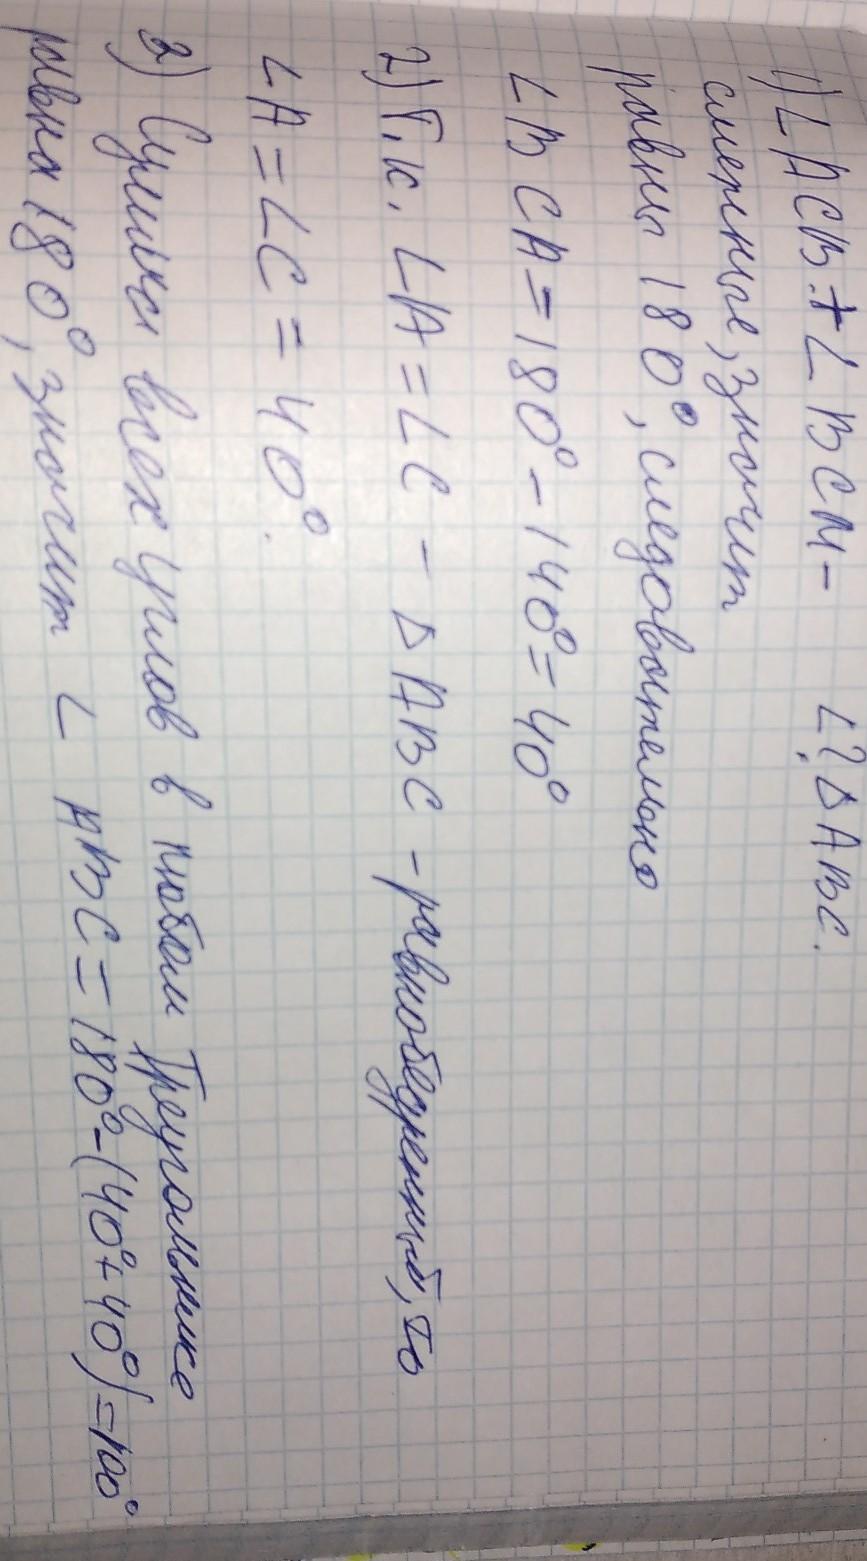 1) ∠ACB + ∠BCM - ∠? ΔABC.
смежные, значит
равны 180°, следовательно
∠BCA = 180° - 140° = 40°
2) Т.к. ∠A = ∠C - ΔABC - равнобедренный, то
∠A = ∠C = 40°.
3) Сумма всех углов в любом треугольнике
равна 180°, значит ∠ABC = 180° - (40° + 40°) = 100°